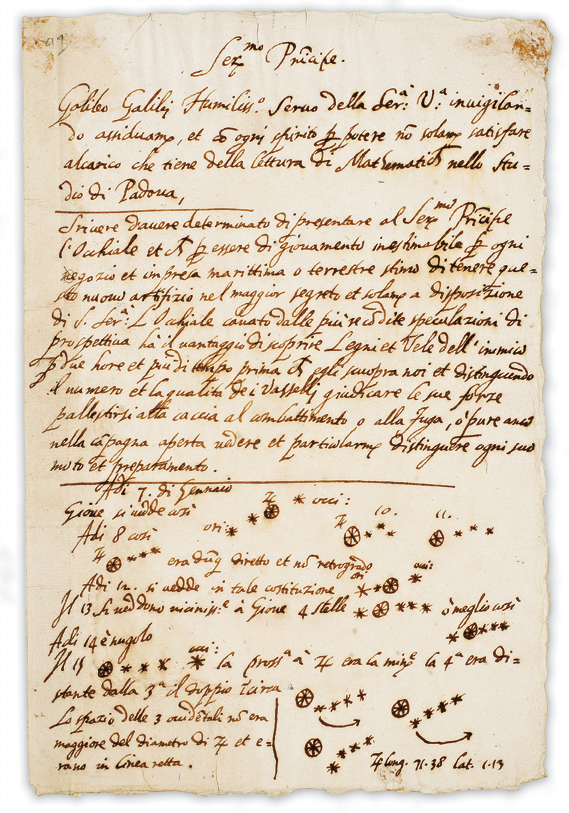 Ser.mo Prĩcipe.
Galileo Galilei Humiliss.o Servo della Ser.a V.a invigilan=
do assiduam.e, et cõ ogni spirito ꝑ potere nõ solam.e satisfare
alcarico che tiene della lettura di Mathematich nello Stu=
dio di Padova,
Scrivere d'avere determinato di presentare al Ser.mo Prĩcipe
l'Occhiale et ꝑ essere di giovamento inestimabile ꝑ ogni
negozio et impresa marittima o terrestre stimo di tenere que=
sto nuovo artifizio nel maggior segreto et solam.e a disposizione
di S. Ser.a L'Ochiale cavato dalle più recõdite speculazioni di
prospettiva hà il vantaggio di scoprire Legni et Vele dell'inimico
ꝑ due hore et più di tempo prima ch egli scuopra noi et distinguendo
il numero et la qualità de i Vasselli giudicare le sue forze
pallestirsi alla caccia al combattimento o alla fuga, ò pure anco
nella cãpagna aperta vedere et particolarm.e distinguere ogni suo
moto et preparamento.
Adi 7. di Gennaio
Giove si vedde così ♃ occi:
Adi 8 così ori: ♃ 10. 11.
♃ era dũq diretto et nõ retrogrado
Adi 12. si vedde in tale costituzione ori occi:
Il 13 si veddono vicinis.e à Giove 4 stelle ò meglio così
Adi 14 è nugolo
Il 15 occi: la pross.a à ♃ era la min.e la 4.a era di=
stante dalla 3.a il doppio ĩcirca
Lo spazio delle 3 occidẽtali nõ era
maggiore del diametro di ♃ et e=
rano in linea retta.
♃ long. 71.38 lat. 1.13